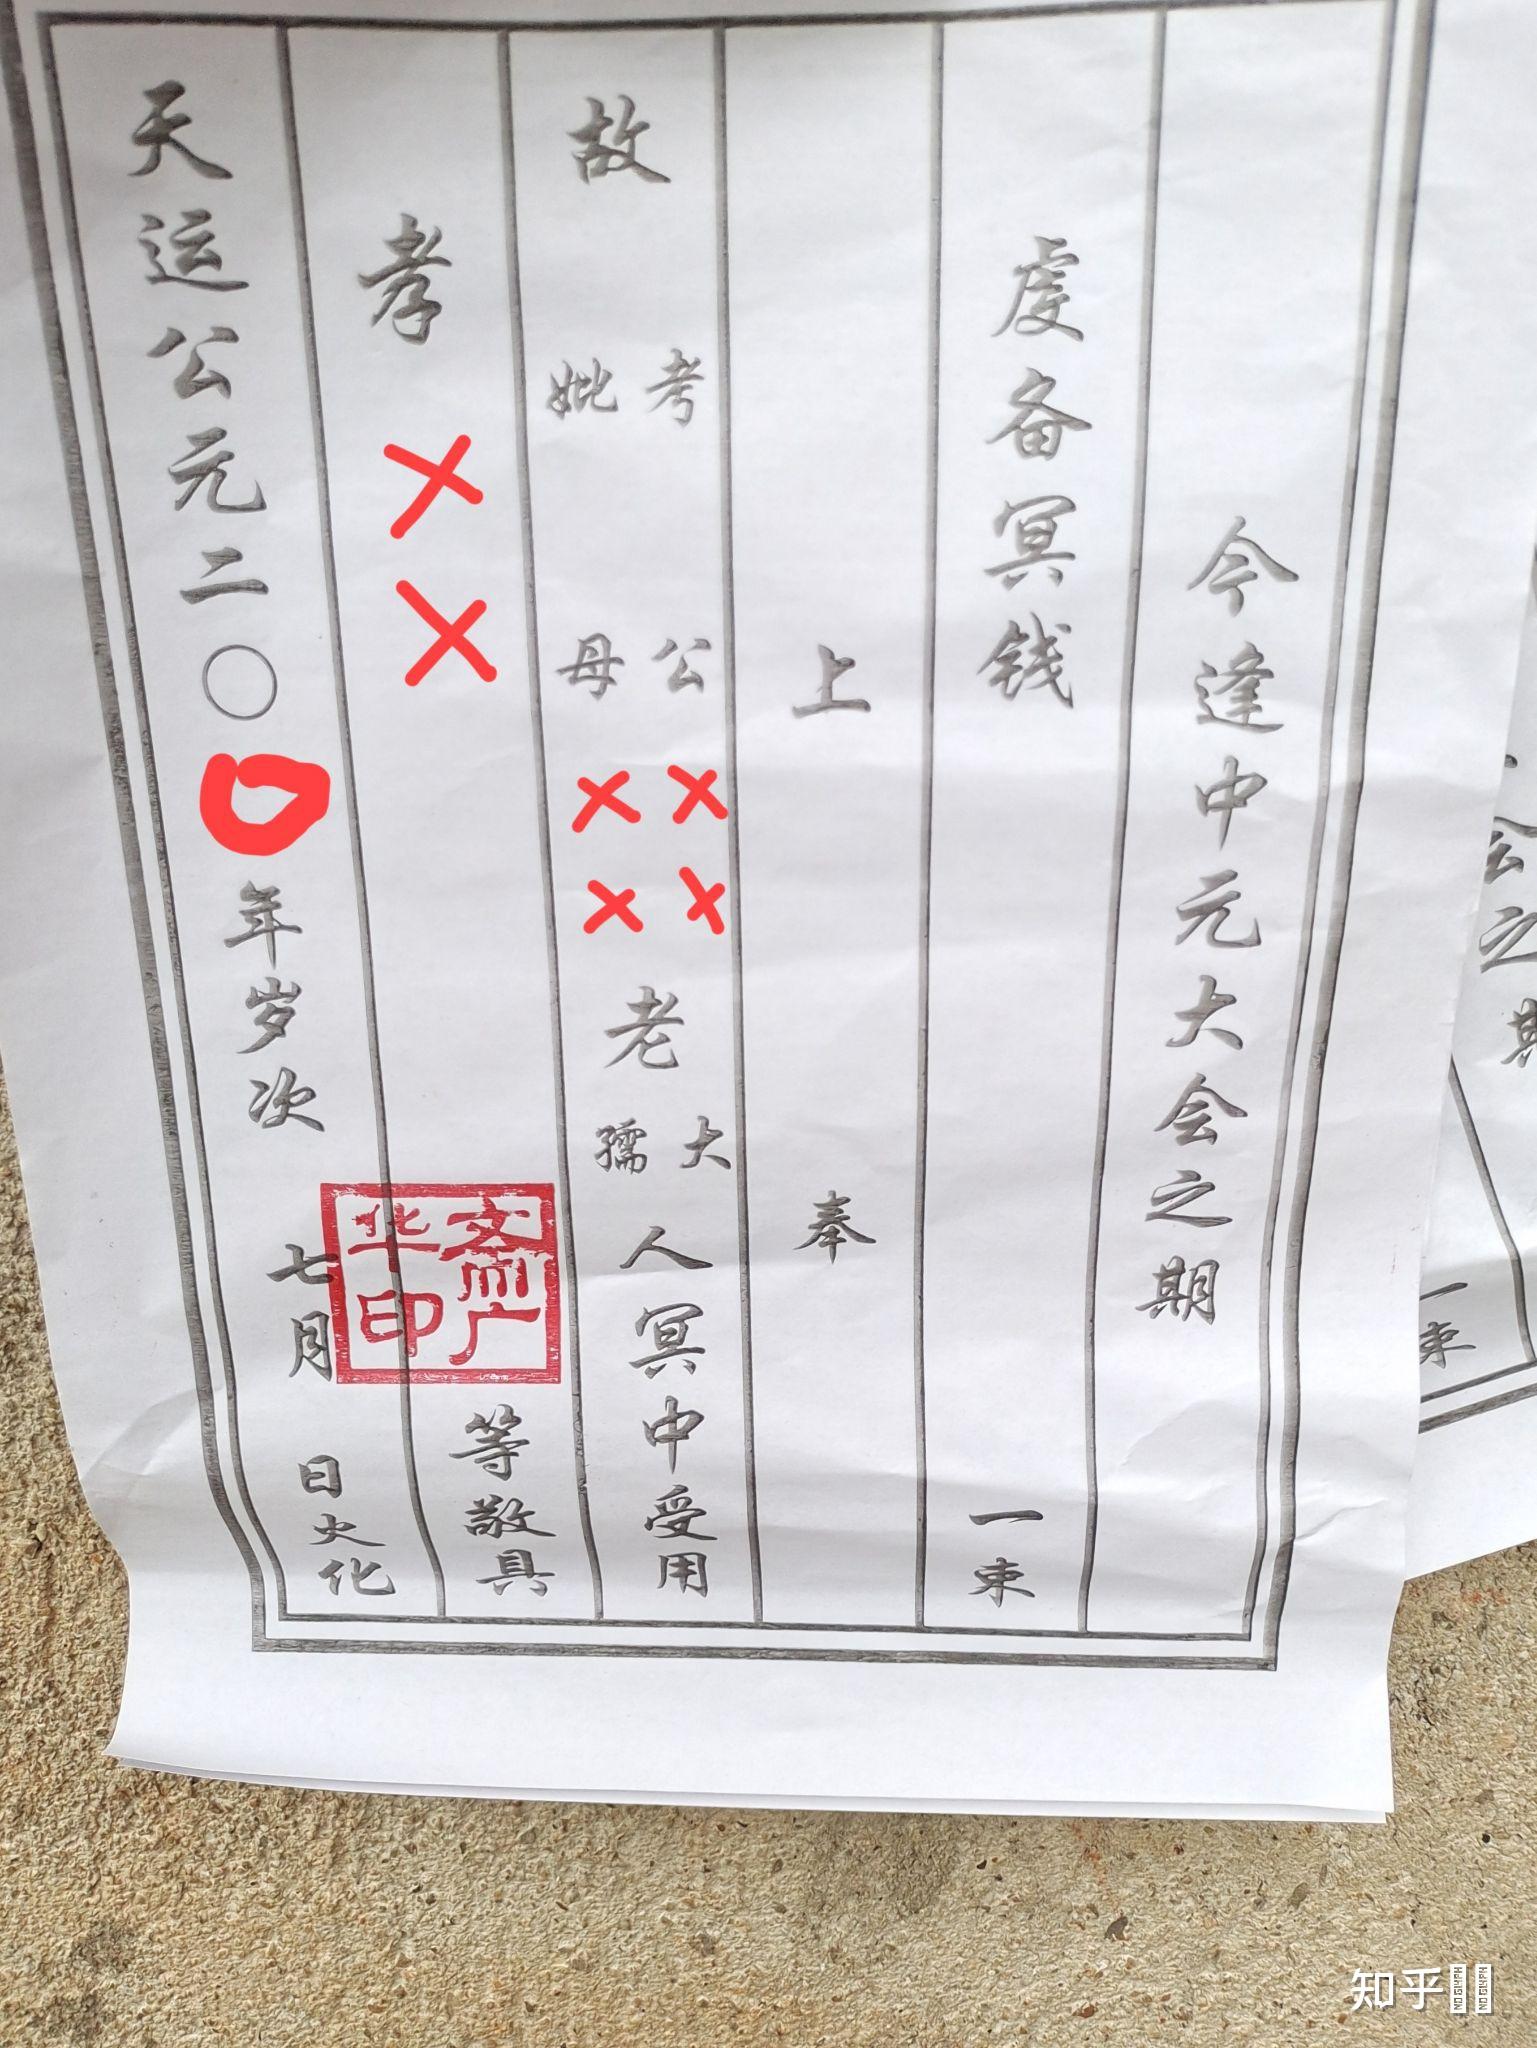 今逢中元大会之期
虔备冥钱 一束
上 奉
故 考妣 公母 ×××× 老 大孺 人冥中受用
孝 ×× 等敬具
天运公元二〇 年岁次 七月 日火化
华 印
公之期
一束
知乎